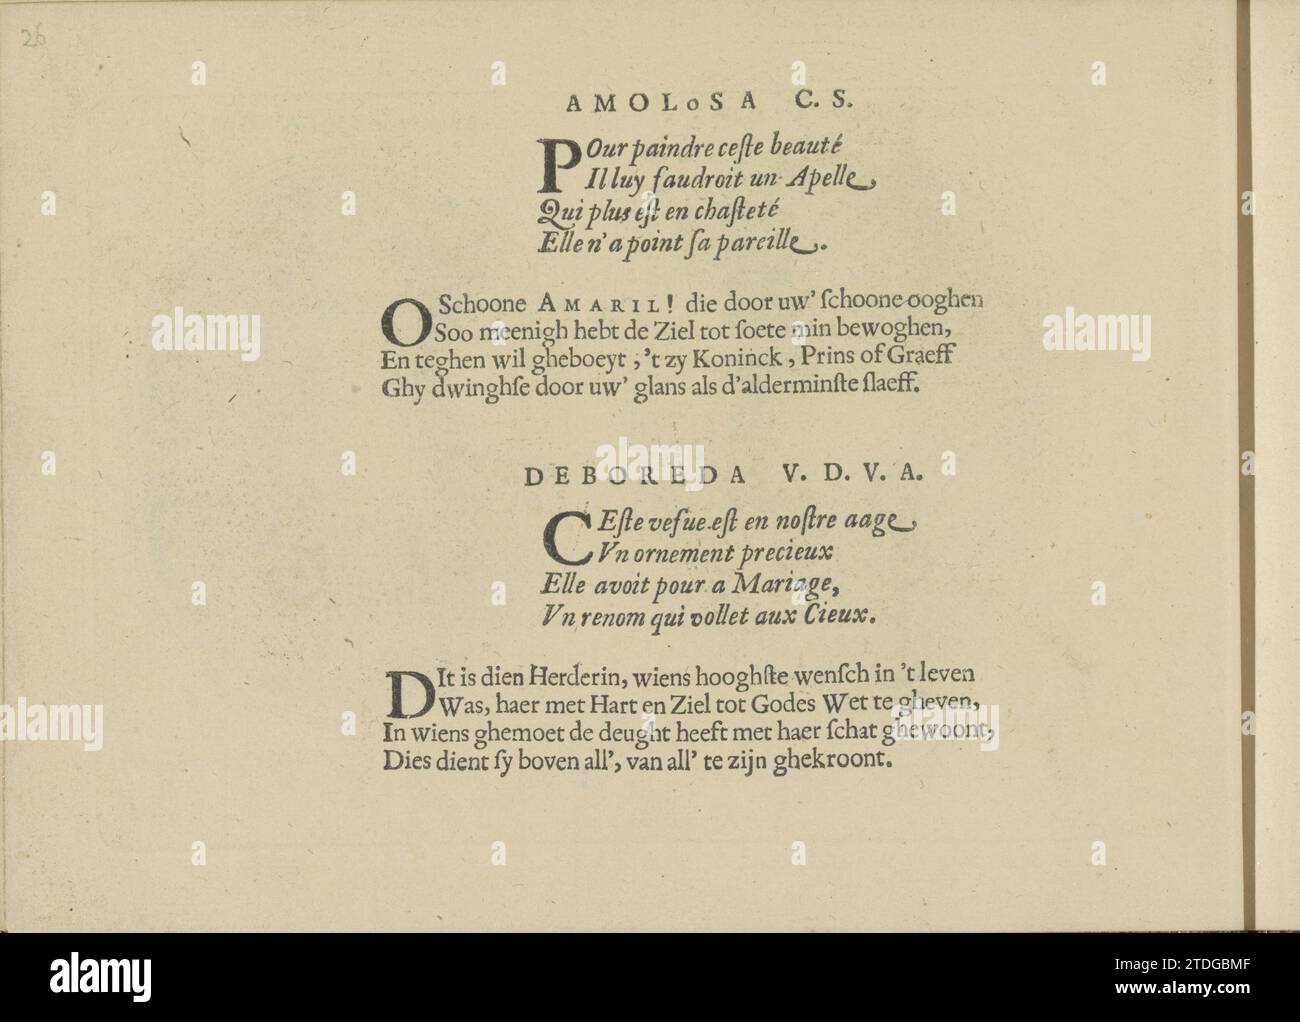 26
AMOLoSA C. S.
POur paindre ceſte beauté
Il luy faudroit un Apelle,
Qui plus eſt en chaſteté
Elle n'a point ſa pareille.
O Schoone AMARIL! die door uw' ſchoone ooghen
Soo meenigh hebt de Ziel tot ſoete min bewoghen,
En teghen wil gheboeyt, 't zy Koninck, Prins of Graeff
Ghy dwinghſe door uw' glans als d'alderminſte ſlaeff.
DEBOREDA V. D. V. A.
CEſte veſue eſt en noſtre aage,
Vn ornement precieux
Elle avoit pour a Mariage,
Vn renom qui vollet aux Cieux.
DIt is dien Herderin, wiens hooghſte wenſch in 't leven
Was, haer met Hart en Ziel tot Godes Wet te gheven,
In wiens ghemoet de deught heeft met haer ſchat ghewoont,
Dies dient ſy boven all', van all' te zijn ghekroont.
alamy
Image ID: 2TDGBMF
www.alamy.com